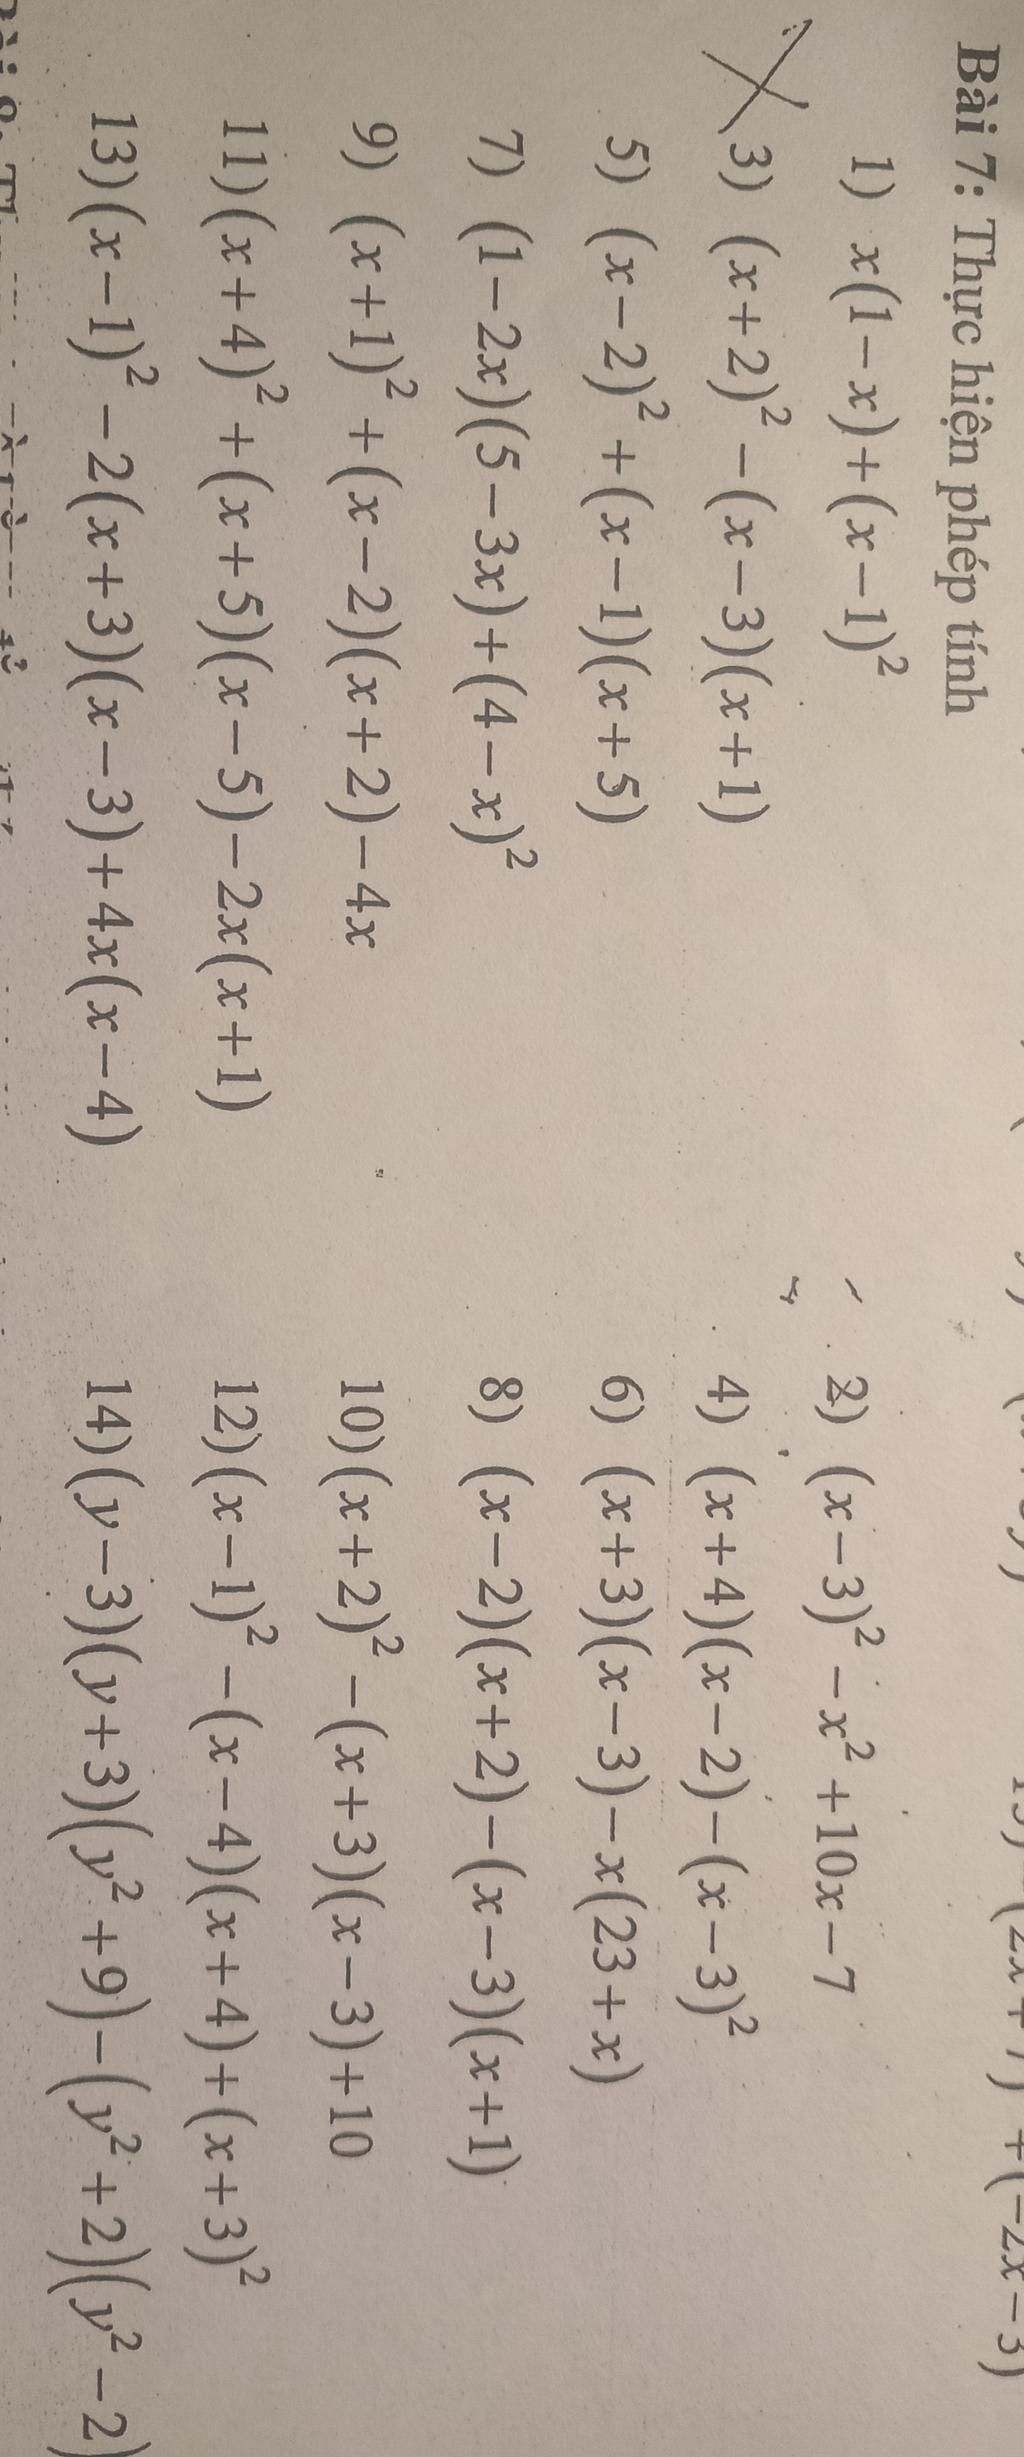 Bài 7: Thực hiện phép tính
1) x(1−x)+(x−1)²
2) (x−3)²−x²+10x−7
3) (x+2)²−(x−3)(x+1)
4) (x+4)(x−2)−(x−3)²
5) (x−2)²+(x−1)(x+5)
6) (x+3)(x−3)−x(23+x)
7) (1−2x)(5−3x)+(4−x)²
8) (x−2)(x+2)−(x−3)(x+1)
9) (x+1)²+(x−2)(x+2)−4x
10)(x+2)²−(x+3)(x−3)+10
11)(x+4)²+(x+5)(x−5)−2x(x+1)
12)(x−1)²−(x−4)(x+4)+(x+3)²
13)(x−1)²−2(x+3)(x−3)+4x(x−4)
14)(y−3)(y+3)(y²+9)−(y²+2)(y²−2)